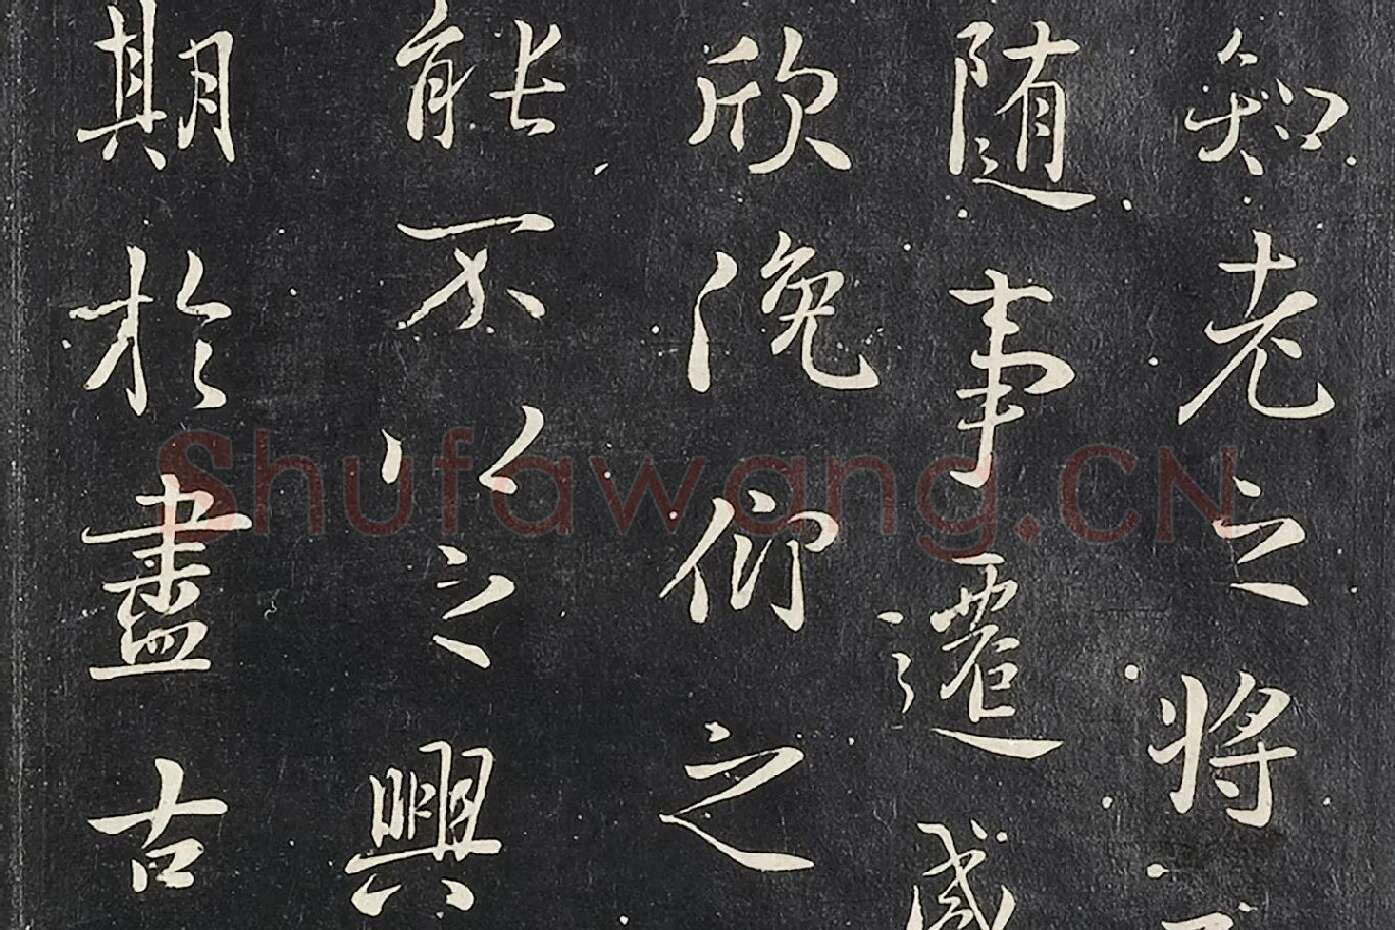 知老之将
随事遷感
欣俛仰之
能不以之興
期於盡古
Shufawang.CN